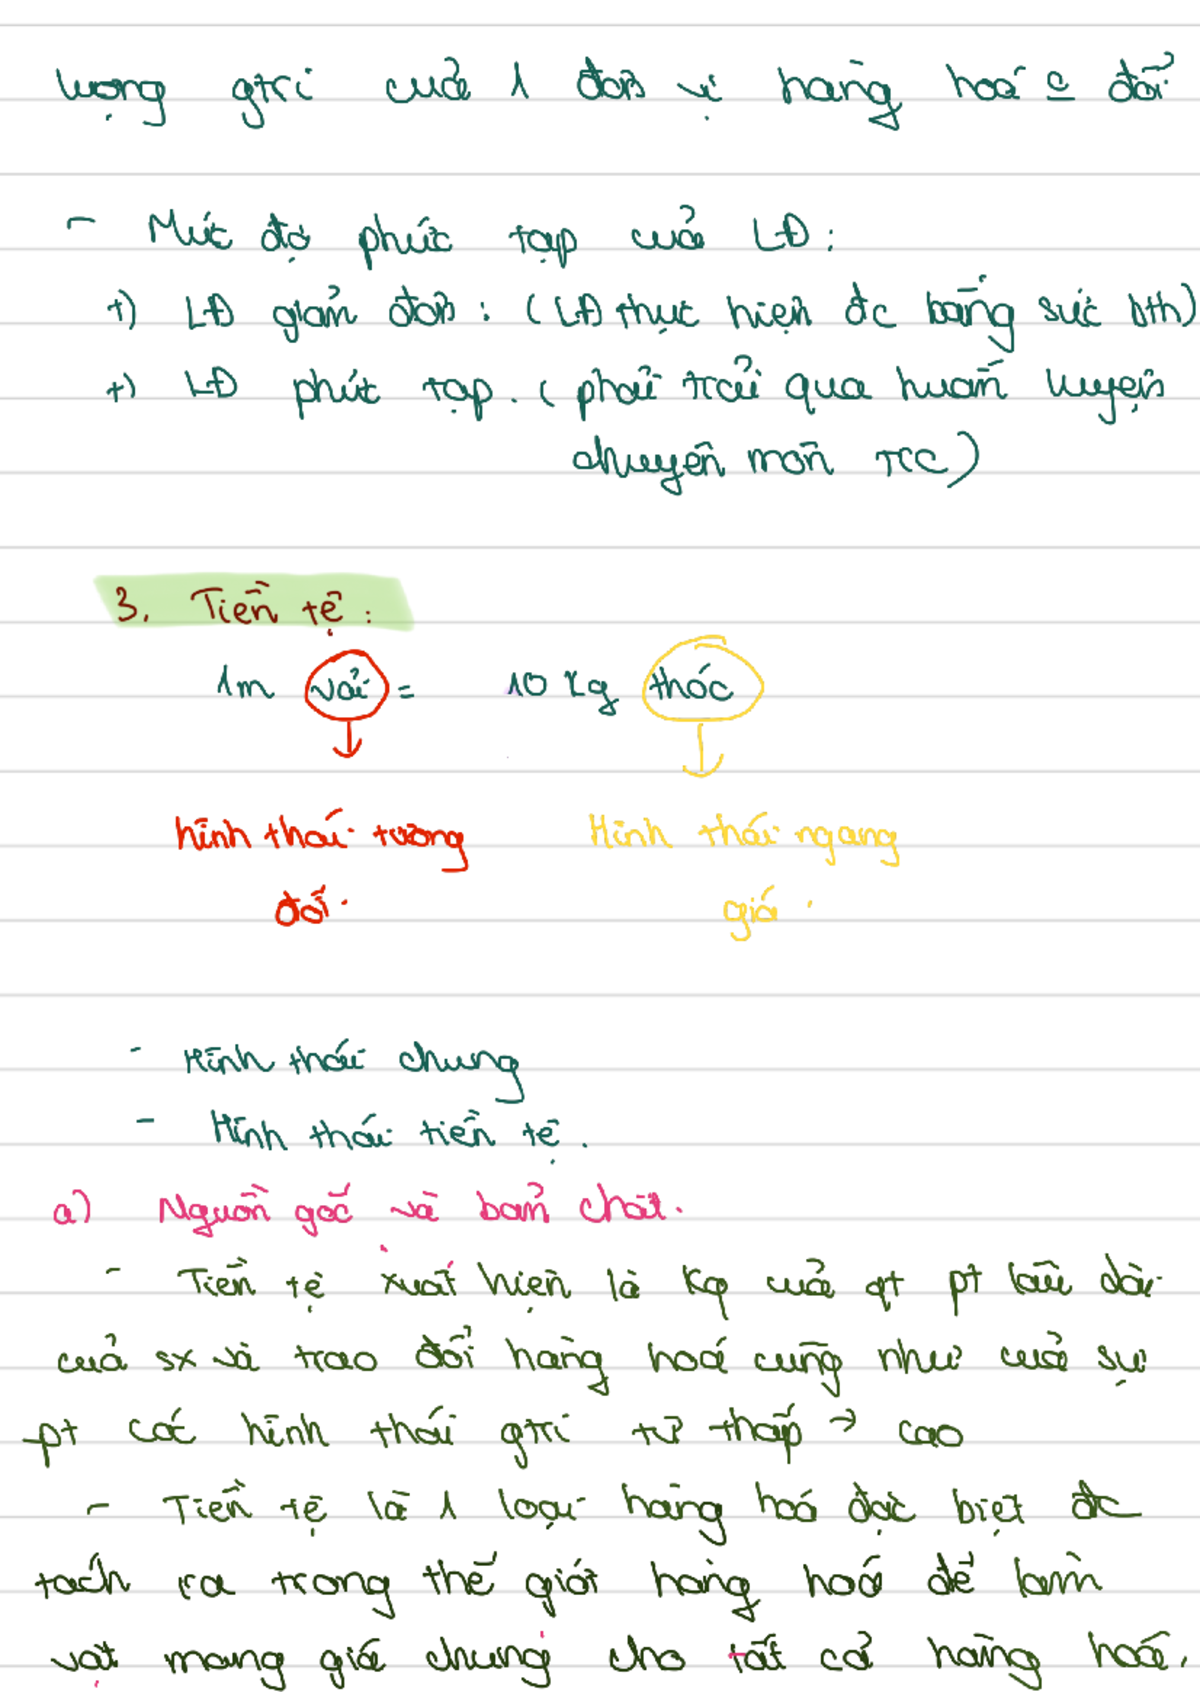 lượng gtri của 1 đơn vị hàng hoá c đổi
- Mức độ phức tạp của LĐ:
+) LĐ giản đơn: (LĐ thực hiện đc bằng sức bth)
+) LĐ phức tạp. (phải trải qua huấn luyện
chuyên môn TCC)
3. Tiền tệ:
1m vải = 10 kg thóc
hình thái tương
đối.
Hình thái ngang
giá.
- Hình thái chung
- Hình thái tiền tệ.
a) Nguồn gốc và bản chất.
- Tiền tệ xuất hiện là kq của qt pt lâu dài
của sx và trao đổi hàng hoá cũng như của sự
pt các hình thái gtri từ thấp → cao
- Tiền tệ là 1 loại hàng hoá đặc biệt đc
tách ra trong thế giới hàng hoá để làm
vật mang giá chung cho tất cả hàng hoá.